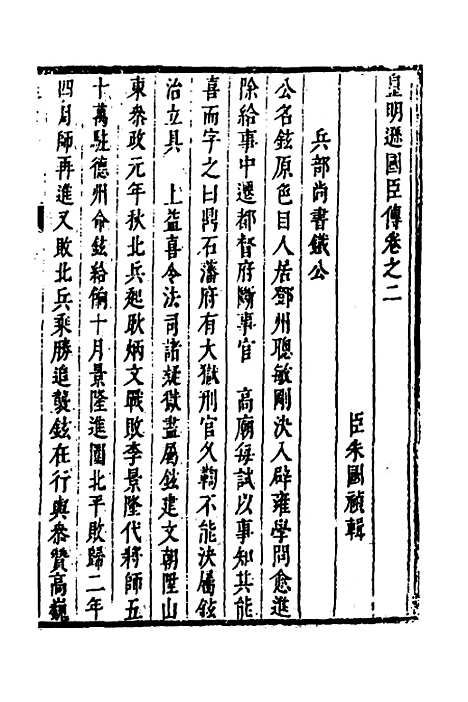 皇明遜國臣傳卷之二
臣朱國禎輯
兵部尚書鐵公
公名鉉原色目人居鄧州聰敏剛決入辟雍學問愈進
除給事中遷都督府斷事官　高廟每試以事知其能
喜而字之曰鼎石藩府有大獄刑官久鞫不能決屬鉉
治立具　上益喜令法司諸疑獄盡屬鉉建文朝陞山
東叅政元年秋北兵起耿炳文戰敗李景隆代將師五
十萬駐德州命鉉給餉十月景隆進圍北平敗歸二年
四月師再進又敗北兵乘勝追襲鉉在行與叅贊高巍